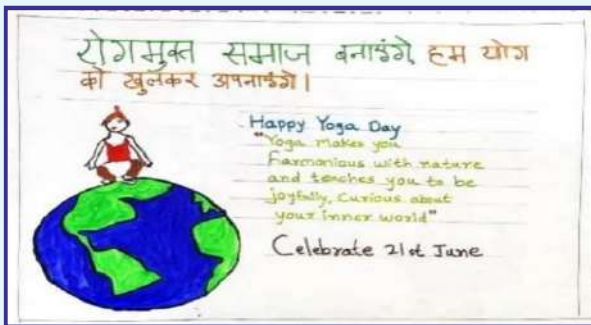 रोगमुक्त समाज बनाऐंगे, हम योग
को खुलकर अपनाऐंगे।
Happy Yoga Day
"Yoga makes you
harmonious with nature
and teaches you to be
joyfully, curious about
your inner world"
Celebrate 21st June